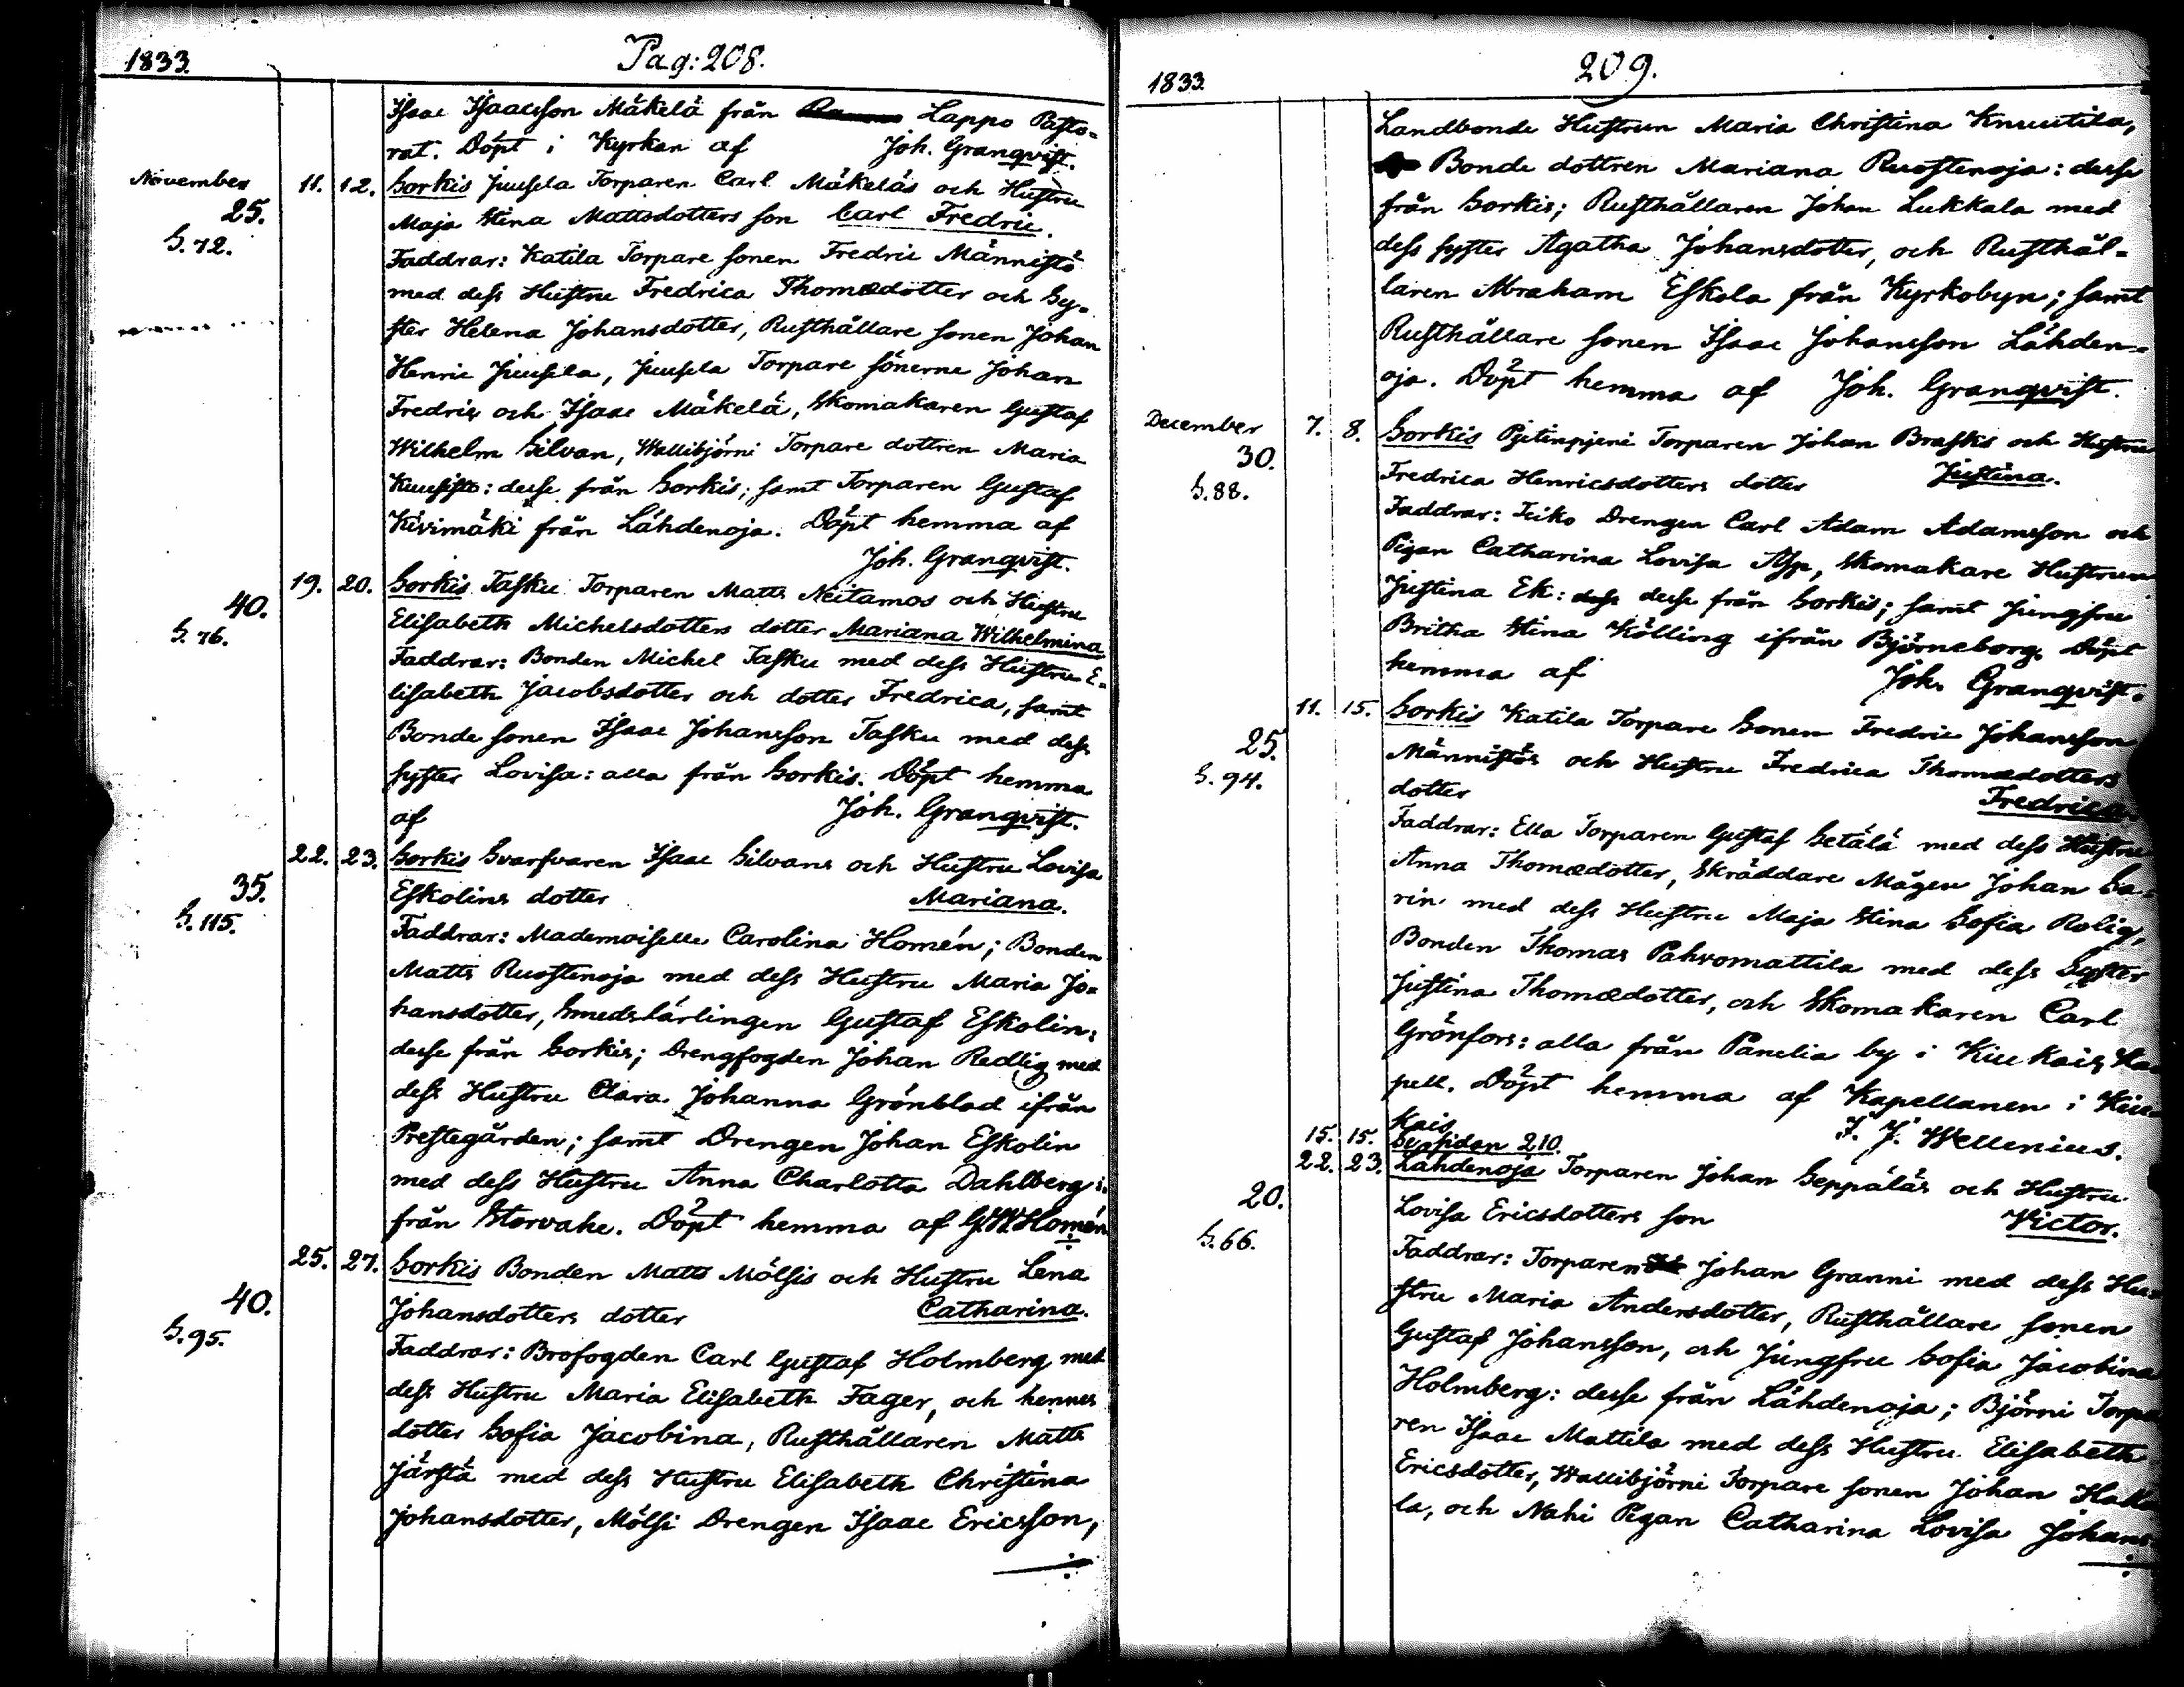 1833.
Pag: 208.
Isaac Isaacsson Mäkelä från Lappo Pasto=
rat. Döpt i Kyrkan af Joh. Granqvist.
November 11. 12. Sorkis Juusela Torparen Carl Mäkeläs och Hustru
25. Maja Stina Mattsdotters son Carl Fredric.
S. 72. Faddrar: Katila Torpare sonen Fredric Männistö
med dess Hustru Fredrica Thomædotter och Sy=
ster Helena Johansdotter, Rusthållare sonen Johan
Henric Juusela, Juusela Torpare sönerne Johan
Fredric och Isaac Mäkelä, Skomakaren Gustaf
Wilhelm Silvan, Wallibjörni Torpare dottren Maria
Kuusisto: desse från Sorkis; samt Torparen Gustaf
Kivimäki från Lähdenoja. Döpt hemma af
Joh. Granqvist.
19. 20. Sorkis Tasku Torparen Matts Neitamos och Hustru
40. Elisabeth Michelsdotters dotter Mariana Wilhelmina
S. 76. Faddrar: Bonden Michel Tasku med dess Hustru E=
lisabeth Jacobsdotter och dotter Fredrica, samt
Bonde sonen Isaac Johansson Tasku med dess
syster Lovisa: alla från Sorkis. Döpt hemma
af Joh. Granqvist.
22. 23. Sorkis Svarfvaren Isaac Silvans och Hustru Lovisa
35. Eskolins dotter Mariana.
S. 115. Faddrar: Mademoiselle Carolina Homén; Bonden
Matts Ruostenoja med dess Hustru Maria Jo=
hansdotter, Smedslärlingen Gustaf Eskolin:
desse från Sorkis; Drengfogden Johan Redlig med
dess Hustru Clara Johanna Grönblad ifrån
Prestegården; samt Drengen Johan Eskolin
med dess Hustru Anna Charlotta Dahlberg i=
från Storvahe. Döpt hemma af G.W. Homén
25. 27. Sorkis Bonden Matts Mölsis och Hustru Lena
40. Johansdotters dotter Catharina.
S. 95. Faddrar: Brofogden Carl Gustaf Holmberg med
dess Hustru Maria Elisabeth Fager, och hennes
dotter Sofia Jacobina, Rusthållaren Matts
Järstä med dess Hustru Elisabeth Christina
Johansdotter, Mölsi Drengen Isaac Ericsson,
1833.
209.
Landbonde Hustrun Maria Christina Knuutila,
Bonde dottren Mariana Ruostenoja: desse
från Sorkis; Rusthållaren Johan Lukkala med
dess syster Agatha Johansdotter, och Rusthål=
laren Abraham Eskola från Kyrkobyn; samt
Rusthållare sonen Isaac Johansson Lähden=
oja. Döpt hemma af Joh. Granqvist.
December 7. 8. Sorkis Torparen Johan Brasks och Hustru
30. Fredrica Henricsdotters dotter Justina.
S. 88. Faddrar: Drengen Carl Adam Adamsson och
Pigan Catharina Lovisa Asp, Skomakare Hustrun
Justina Ek: desse från Sorkis; samt Jungfru
Britha Stina Kölling ifrån Björneborg. Döpt
hemma af Joh. Granqvist.
11. 15. Sorkis Katila Torpare Sonen Fredric Johansson
25. Männistös och Hustru Fredrica Thomædotters
S. 94. dotter Fredrica.
Faddrar: Ella Torparen Gustaf Setälä med dess Hustru
Anna Thomædotter, Skräddare Mågen Johan Sa=
rin med dess Hustru Maja Stina Sofia Rolig,
Bonden Thomas Pahvomattila med dess Syster
Justina Thomædotter, och Skomakaren Carl
Grönfors: alla från Panelia by i Kiukais Ka=
pell. Döpt hemma af Kapellanen i Kiu=
kais F. J. Wellenius.
15. 15. Se sidan 210.
22. 23. Lähdenoja Torparen Johan Seppäläs och Hustru
20. Lovisa Ericsdotters son Victor.
S. 66. Faddrar: Torparen Johan Granni med dess Hu=
stru Maria Andersdotter, Rusthållare sonen
Gustaf Johansson, och Jungfru Sofia Jacobina
Holmberg: desse från Lähdenoja; Björni Torpa
ren Isaac Mattila med dess Hustru Elisabeth
Ericsdotter, Wallibjörni Torpare sonen Johan
la, och Nahi Pigan Catharina Lovisa Johans